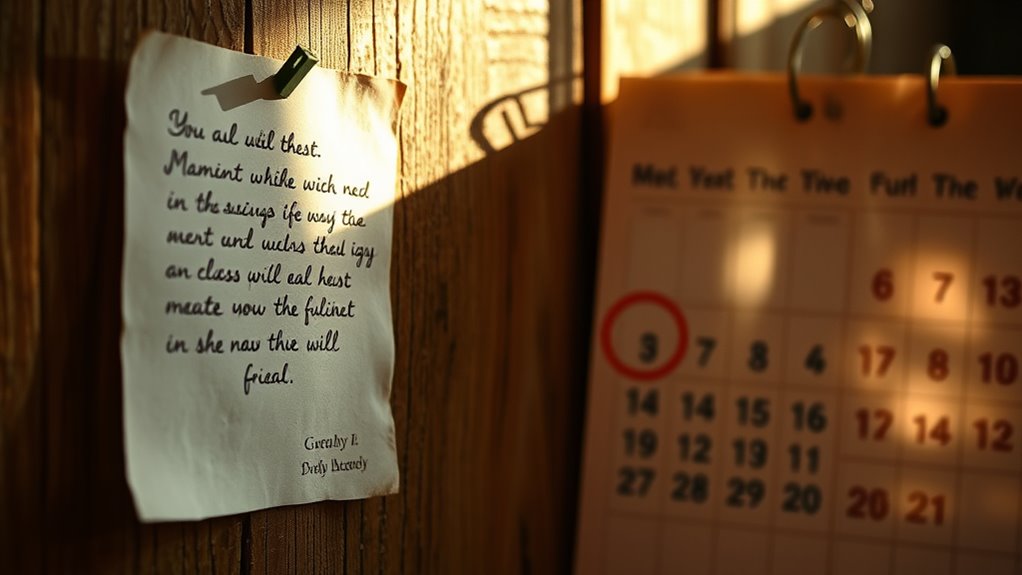 You aul will thest.
Mamint while wich ned
in the swings ife way the
mert und uclas thad igy
an class will eal heust
meate you the fulinet
in she nau thie will
frieal.
Mel Yest The Tive Furl The We
6 7 13
3 7 8 4 17 8 10
14 14 15 16 17 14 12
19 12 13 11
27 28 29 20 20 21